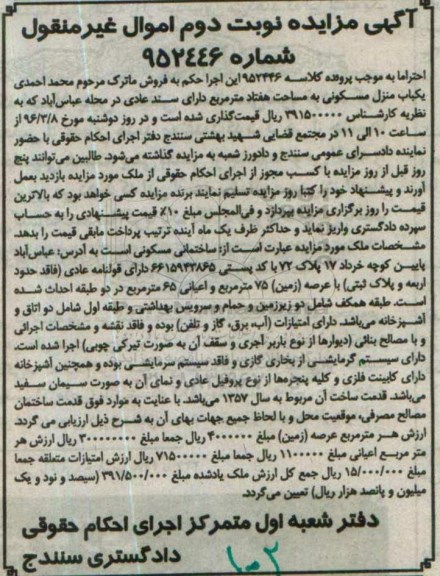 آگهی مزایده نوبت دوم اموال غیرمنقول
شماره ۹۵۲۴۴۶
احتراما به موجب پرونده کلاسه ۹۵۲۴۴۶ این اجرا حکم به فروش ماترک مرحوم محمد احمدی
یکباب منزل مسکونی به مساحت هفتاد مترمربع دارای سند عادی در محله عباس‌آباد که به
نظریه کارشناس ۳۹۱۵۰۰۰۰۰ ریال قیمت‌گذاری شده است و در روز دوشنبه مورخ ۹۶/۳/۸ از
ساعت ۱۰ الی ۱۱ در مجتمع قضایی شهید بهشتی سنندج دفتر اجرای احکام حقوقی با حضور
نماینده دادسرای عمومی سنندج و دادورز شعبه به مزایده گذاشته می‌شود. طالبین می‌توانند پنج
روز قبل از روز مزایده با کسب مجوز از اجرای احکام حقوقی از ملک مورد مزایده بازدید بعمل
آورند و پیشنهاد خود را کتبا روز مزایده تسلیم نمایند برنده مزایده کسی خواهد بود که بالاترین
قیمت را روز برگزاری مزایده بپردازد و فی‌المجلس مبلغ ۱۰٪ قیمت پیشنهادی را به حساب
سپرده دادگستری واریز نماید و حداکثر ظرف یک ماه آینده ترتیب پرداخت مابقی قیمت را بدهد.
مشخصات ملک مورد مزایده عبارت است از: ساختمانی مسکونی است به آدرس: عباس‌آباد
پایین کوچه خرداد ۱۷ پلاک ۷۲ با کد پستی ۶۶۱۵۹۴۳۸۶۵ دارای قولنامه عادی (فاقد حدود
اربعه و پلاک ثبتی) با عرصه (زمین) ۷۵ مترمربع و اعیانی ۶۵ مترمربع در دو طبقه احداث شده
است. طبقه همکف شامل دو زیرزمین و حمام و سرویس بهداشتی و طبقه اول شامل دو اتاق و
آشپزخانه می‌باشد. دارای امتیازات (آب، برق، گاز و تلفن) بوده و فاقد نقشه و مشخصات اجرائی
و با مصالح بنائی (دیوارها از نوع باربر آجری و سقف آن به صورت تیرکی چوبی) اجرا شده است.
دارای سیستم گرمایشی از بخاری گازی و فاقد سیستم سرمایشی بوده و همچنین آشپزخانه
دارای کابینت فلزی و کلیه پنجره‌ها از نوع پروفیل عادی و نمای آن به صورت سیمان سفید
می‌باشد. قدمت ساخت آن مربوط به سال ۱۳۵۷ می‌باشد. با عنایت به موارد فوق قدمت ساختمان
مصالح مصرفی، موقعیت محل و با لحاظ جمیع جهات بهای آن به شرح ذیل ارزیابی می گردد.
ارزش هر مترمربع عرصه (زمین) مبلغ ۴۰۰۰۰۰۰ ریال جمعا مبلغ ۳۰۰۰۰۰۰۰۰ ریال ارزش هر
متر مربع اعیانی مبلغ ۱۱۰۰۰۰۰ ریال جمعا مبلغ ۷۱۵۰۰۰۰۰ ریال ارزش امتیازات متعلقه جمعا
مبلغ ۱۵/۰۰۰/۰۰۰ ریال جمع کل ارزش ملک یادشده مبلغ ۳۹۱/۵۰۰/۰۰۰ (سیصد و نود و یک
میلیون و پانصد هزار ریال) تعیین می‌گردد.
دفتر شعبه اول متمرکز اجرای احکام حقوقی
دادگستری سنندج